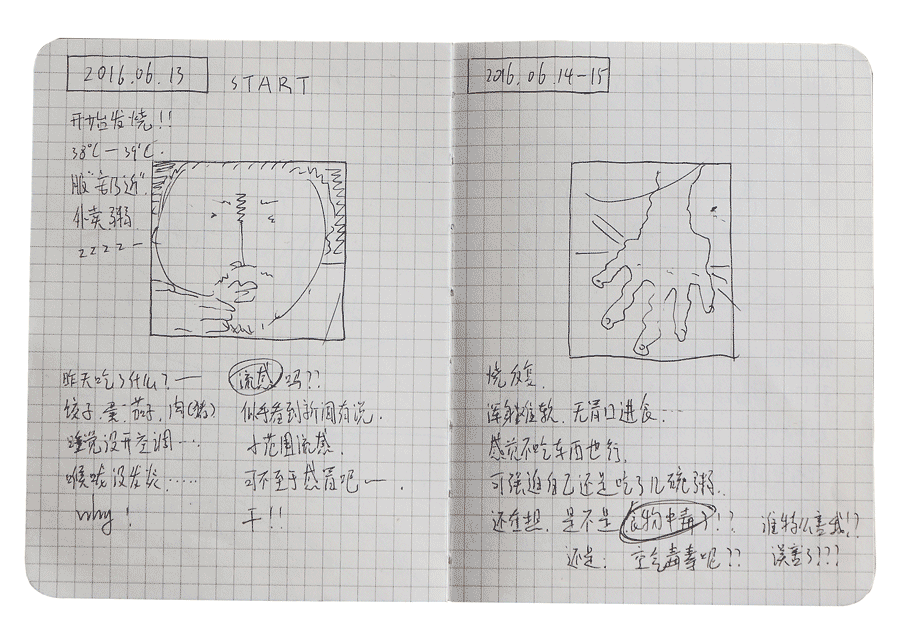 2016.06.13
START
开始发烧!!
38℃—39℃.
服“安乃近”.
外卖粥
zzzz—
昨天吃了什么?—
饺子 蛋. 茄子. 肉(猪)
睡觉没开空调……
喉咙没发炎……
why!
流感吗??
似乎看到新闻有说.
小范围流感.
可不至于感冒吧—.
干!!
2016.06.14-15
烧反复.
浑身瘫软. 无胃口进食…
感觉不吃东西也行.
可强迫自己还是吃了几碗粥..
还在想. 是不是食物中毒了!? 谁特么害我!?
还是: 空气毒毒呢?? 误害了???